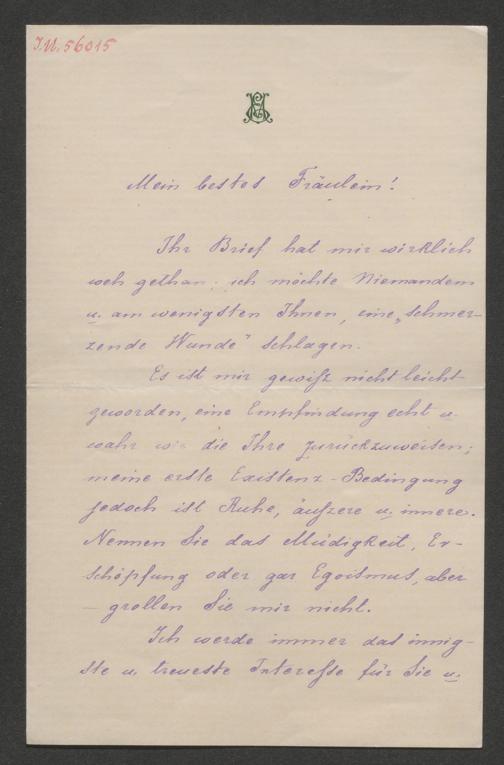 I.N. 56015
Mein bestes Fräulein!
Ihr Brief hat mir wirklich
weh gethan; ich möchte Niemandem
u. am wenigsten Ihnen, eine „schmer-
zende Wunde" schlagen.
Es ist mir gewiß nicht leicht
geworden, eine Empfindung echt u.
wahr wie die Ihre zurückzuweisen;
meine erste Existenz-Bedingung
jedoch ist Ruhe, äußere u. innere.
Nennen Sie das Müdigkeit, Er-
schöpfung oder gar Egoismus, aber
– grollen Sie mir nicht.
Ich werde immer das innig-
ste u. treueste Interesse für Sie u.